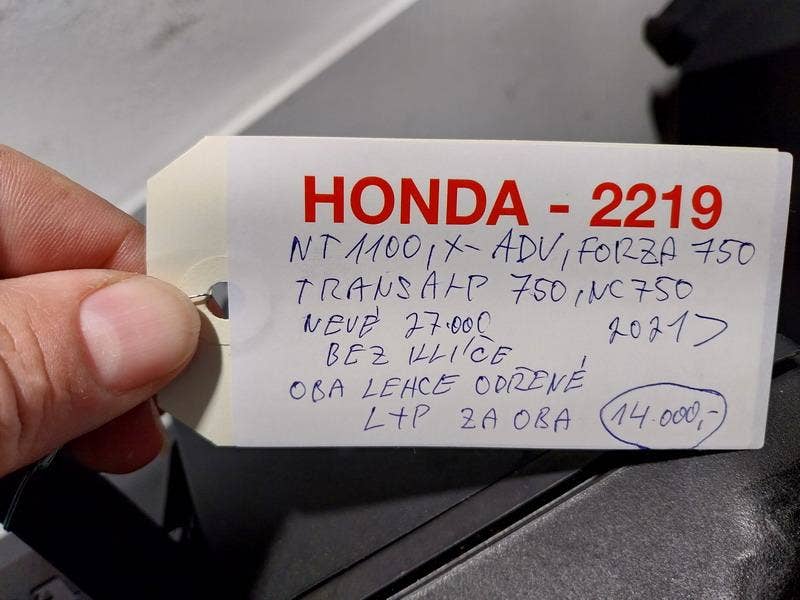 HONDA - 2219
NT 1100, X-ADV, FORZA 750
TRANSALP 750, NC750
NEVÉ 27.000 2021>
BEZ KLÍČE
OBA LEHCE ODŘENÉ
L+P ZA OBA 14.000,-